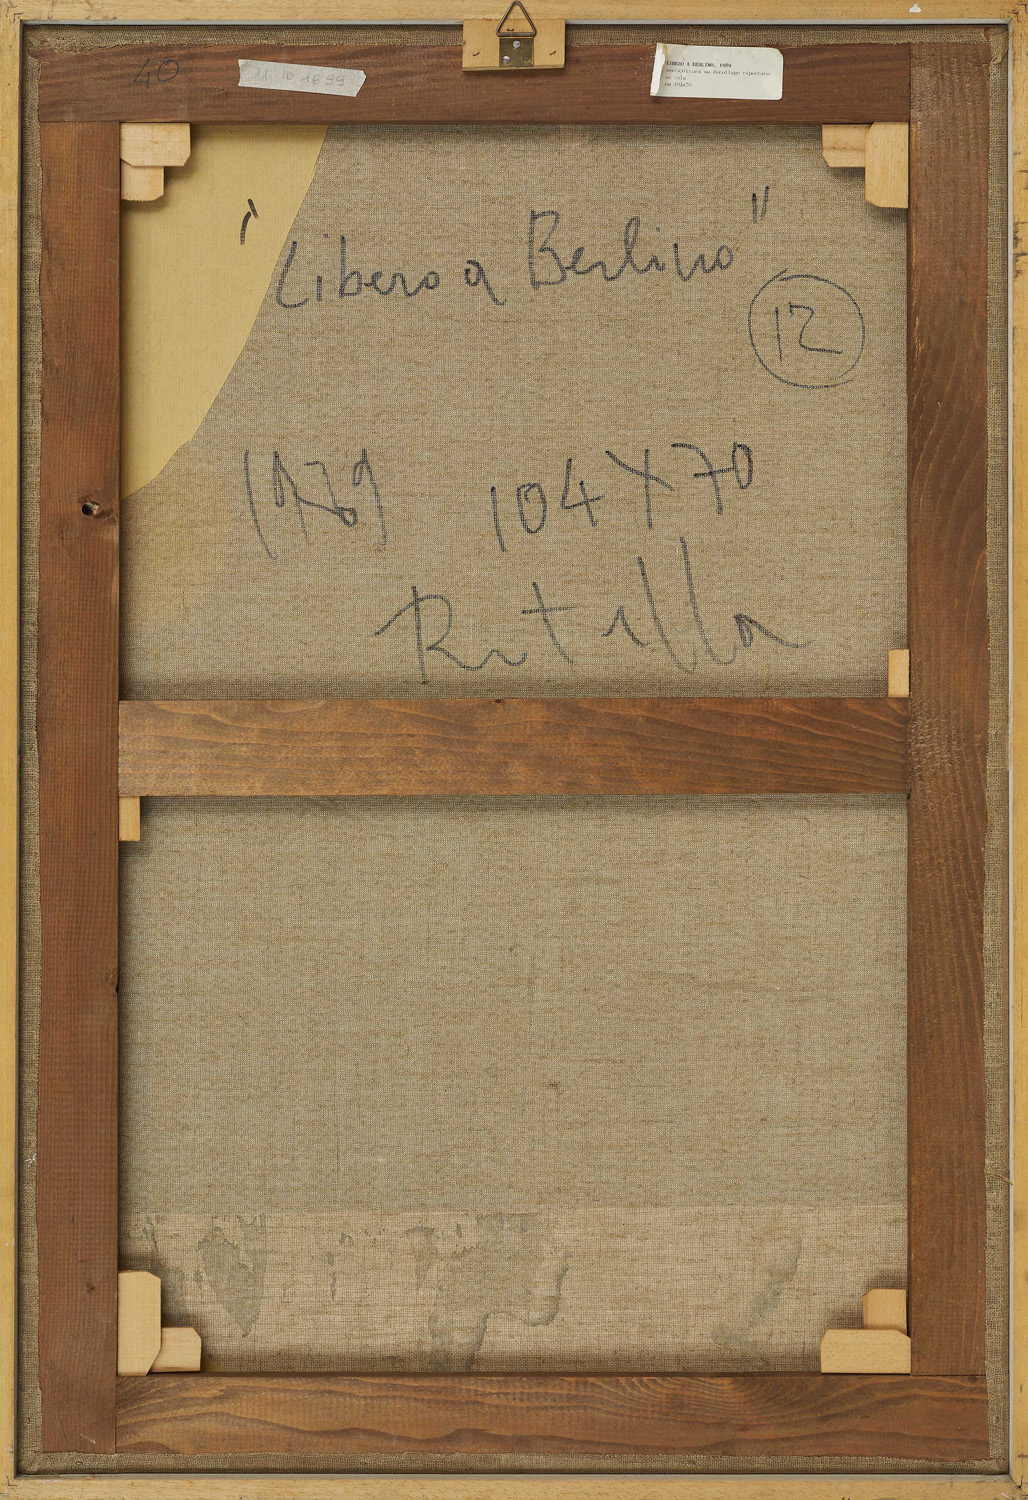 40
11.10 1699
LIBERO A BERLINO, 1989
sovrapittura su decollage riportato
su tela
cm 104x70
"Libero a Berlino"
12
1989 104 X 70
Rotella